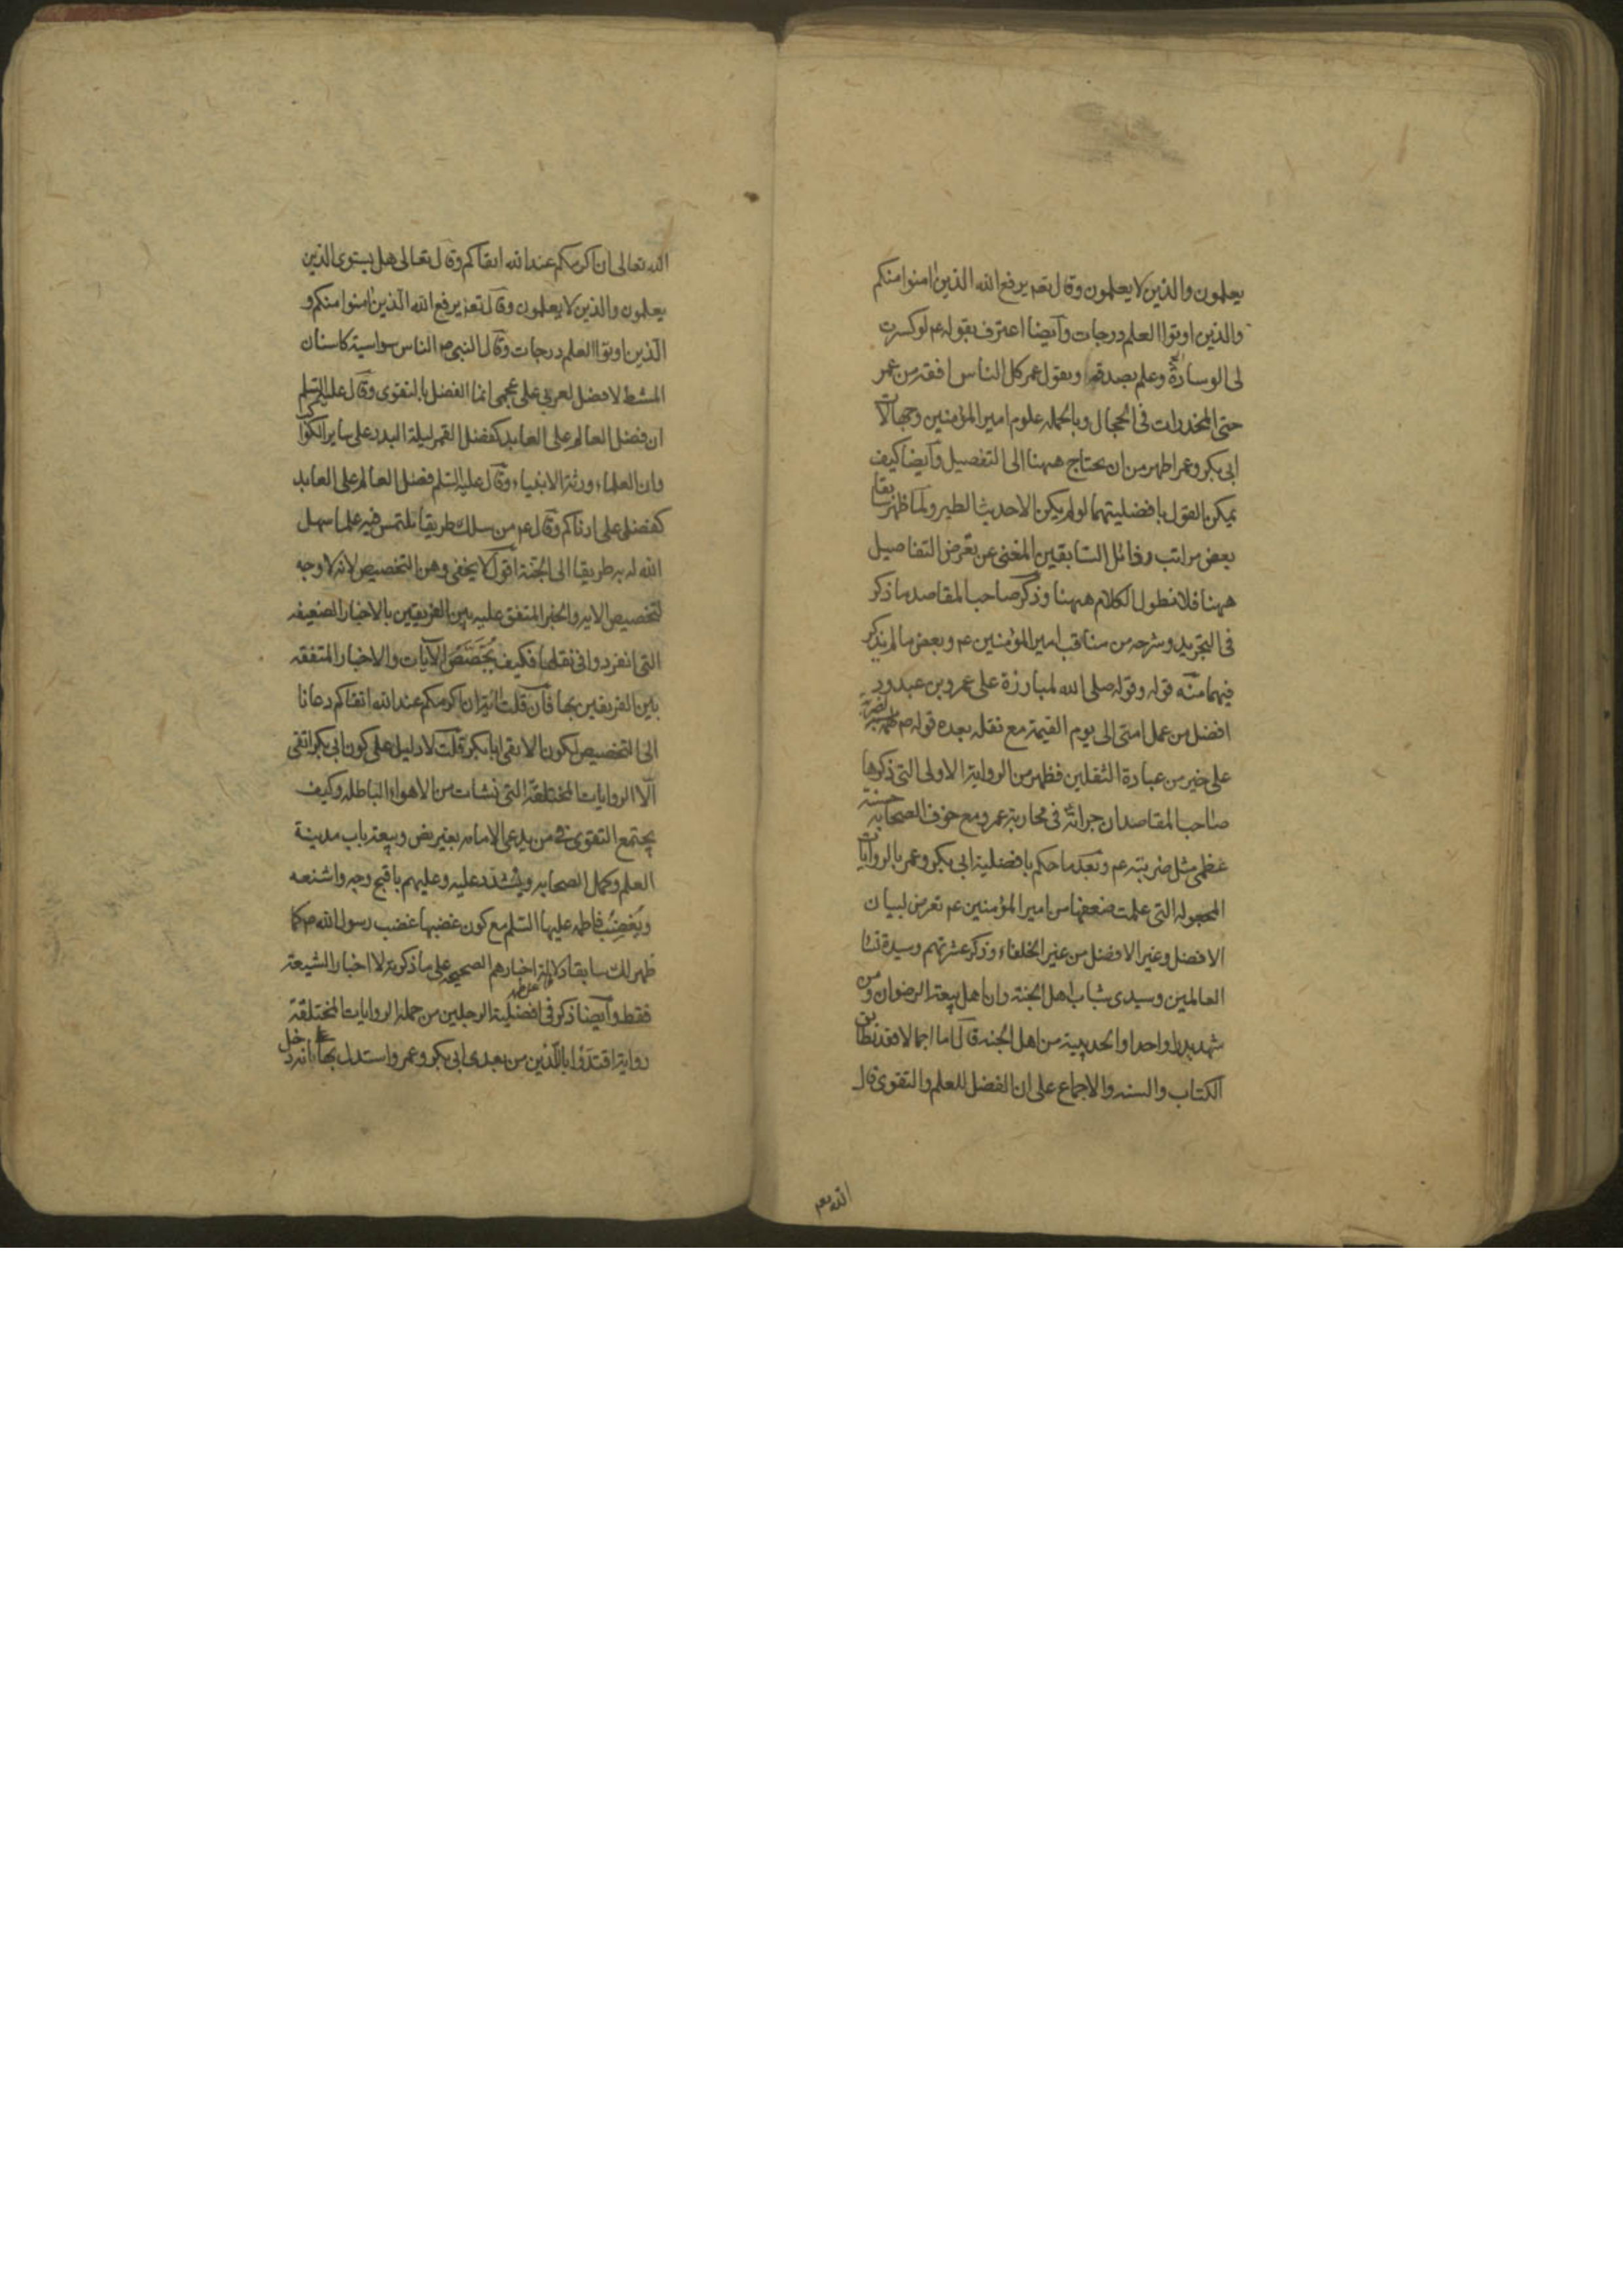 يعلمون والذين لا يعلمون وقال تعم يرفع الله الذين امنوا منكم
والذين اوتوا العلم درجات وايضا اعترف بقوله عم لو كسرت
لى الوسادة وعلم بصدقه وبقول عمر كل الناس افقه من عمر
حتى المخدرات فى الحجال وبالجمله علوم امير المؤمنين وجهالات
ابى بكر وعمر اظهر من ان يحتاج ههنا الى التفصيل وايضا كيف
يمكن القول بافضليتهما لو لم يكن الا حديث الطير ولما ظهر سابقا
بعض مراتب رذائل السابقين المغنى عن تعرض التفاصيل
ههنا فلا نطول الكلام ههنا وذكر صاحب المقاصد ما ذكر
فى التجريد وشرحه من مناقب امير المؤمنين عم وبعض ما لم يذكر
فيهما منه قوله وقوله صلى الله لمبارزة على عمرو بن عبدود
افضل من عمل امتى الى يوم القيمة مع نقله بعده قوله صم لضربة
على خير من عبادة الثقلين فظهر من الرواية الاولى التى ذكرها
صاحب المقاصد ان جراته فى محاربة عمرو مع خوف الصحابه حسنة
عظمى مثل ضربته عم وبعد ما حكم بافضلية ابى بكر وعمر بالروايات
المجعوله التى علمت ضعفها من امير المؤمنين عم تعرض لبيان
الافضل وغير الافضل من غير الخلفاء وذكر عشرتهم وسيدة نسا
العالمين وسيدى شباب اهل الجنة وان اهل بيعة الرضوان ومن
شهد بدرا واحدا والحديبية من اهل الجنه قال اما اجمالا فقد تطابق
الكتاب والسنه والاجماع على ان الفضل للعلم والتقوى قال
الله تعم
الله تعالى ان اكرمكم عند الله اتقاكم وقال تعالى هل يستوى الذين
يعلمون والذين لا يعلمون وقال تعم يرفع الله الذين امنوا منكم و
الذين اوتوا العلم درجات وقال النبى صم الناس سواسية كاسنان
المشط لا فضل لعربى على عجمى انما الفضل بالتقوى وقال عليه السلم
ان فضل العالم على العابد كفضل القمر ليلة البدر على ساير الكواكب
وان العلماء ورثة الانبياء وقال عليه السلم فضل العالم على العابد
كفضلى على ادناكم وقال عم من سلك طريقا يلتمس فيه علما سهل
الله له به طريقا الى الجنة اقول لا يخفى وهن التخصيص لانه لا وجه
لتخصيص الايه والخبر المتفق عليه بين الفريقين بالاخبار الضعيفه
التى انفردوا فى نقلها فكيف يخصص الآيات والاخبار المتفقه
بين الفريقين بها فان قلت اية ان اكرمكم عند الله اتقاكم دعانا
الى التخصيص لكون الاتقى ابا بكر قلت لا دليل على كون ابى بكر اتقى
الا الروايات المختلقة التى نشات من الاهواء الباطله وكيف
يجتمع التقوى فى من يدعى الامامه بغير نص وبيعة باب مدينة
العلم وكمل الصحابه ويشدد عليه وعليهم باقبح وجه واشنعه
ويغضب فاطمه عليها السلم مع كون غضبها غضب رسول الله صم كما
ظهر لك سابقا دلالة اخبارهم الصحيحه على ما ذكرته لا اخبار الشيعة
فقط وايضا ذكر فى افضلية الرجلين من جملة الروايات المختلقة
رواية اقتدوا باللذين من بعدى ابى بكر وعمر واستدل بها بانه دخل